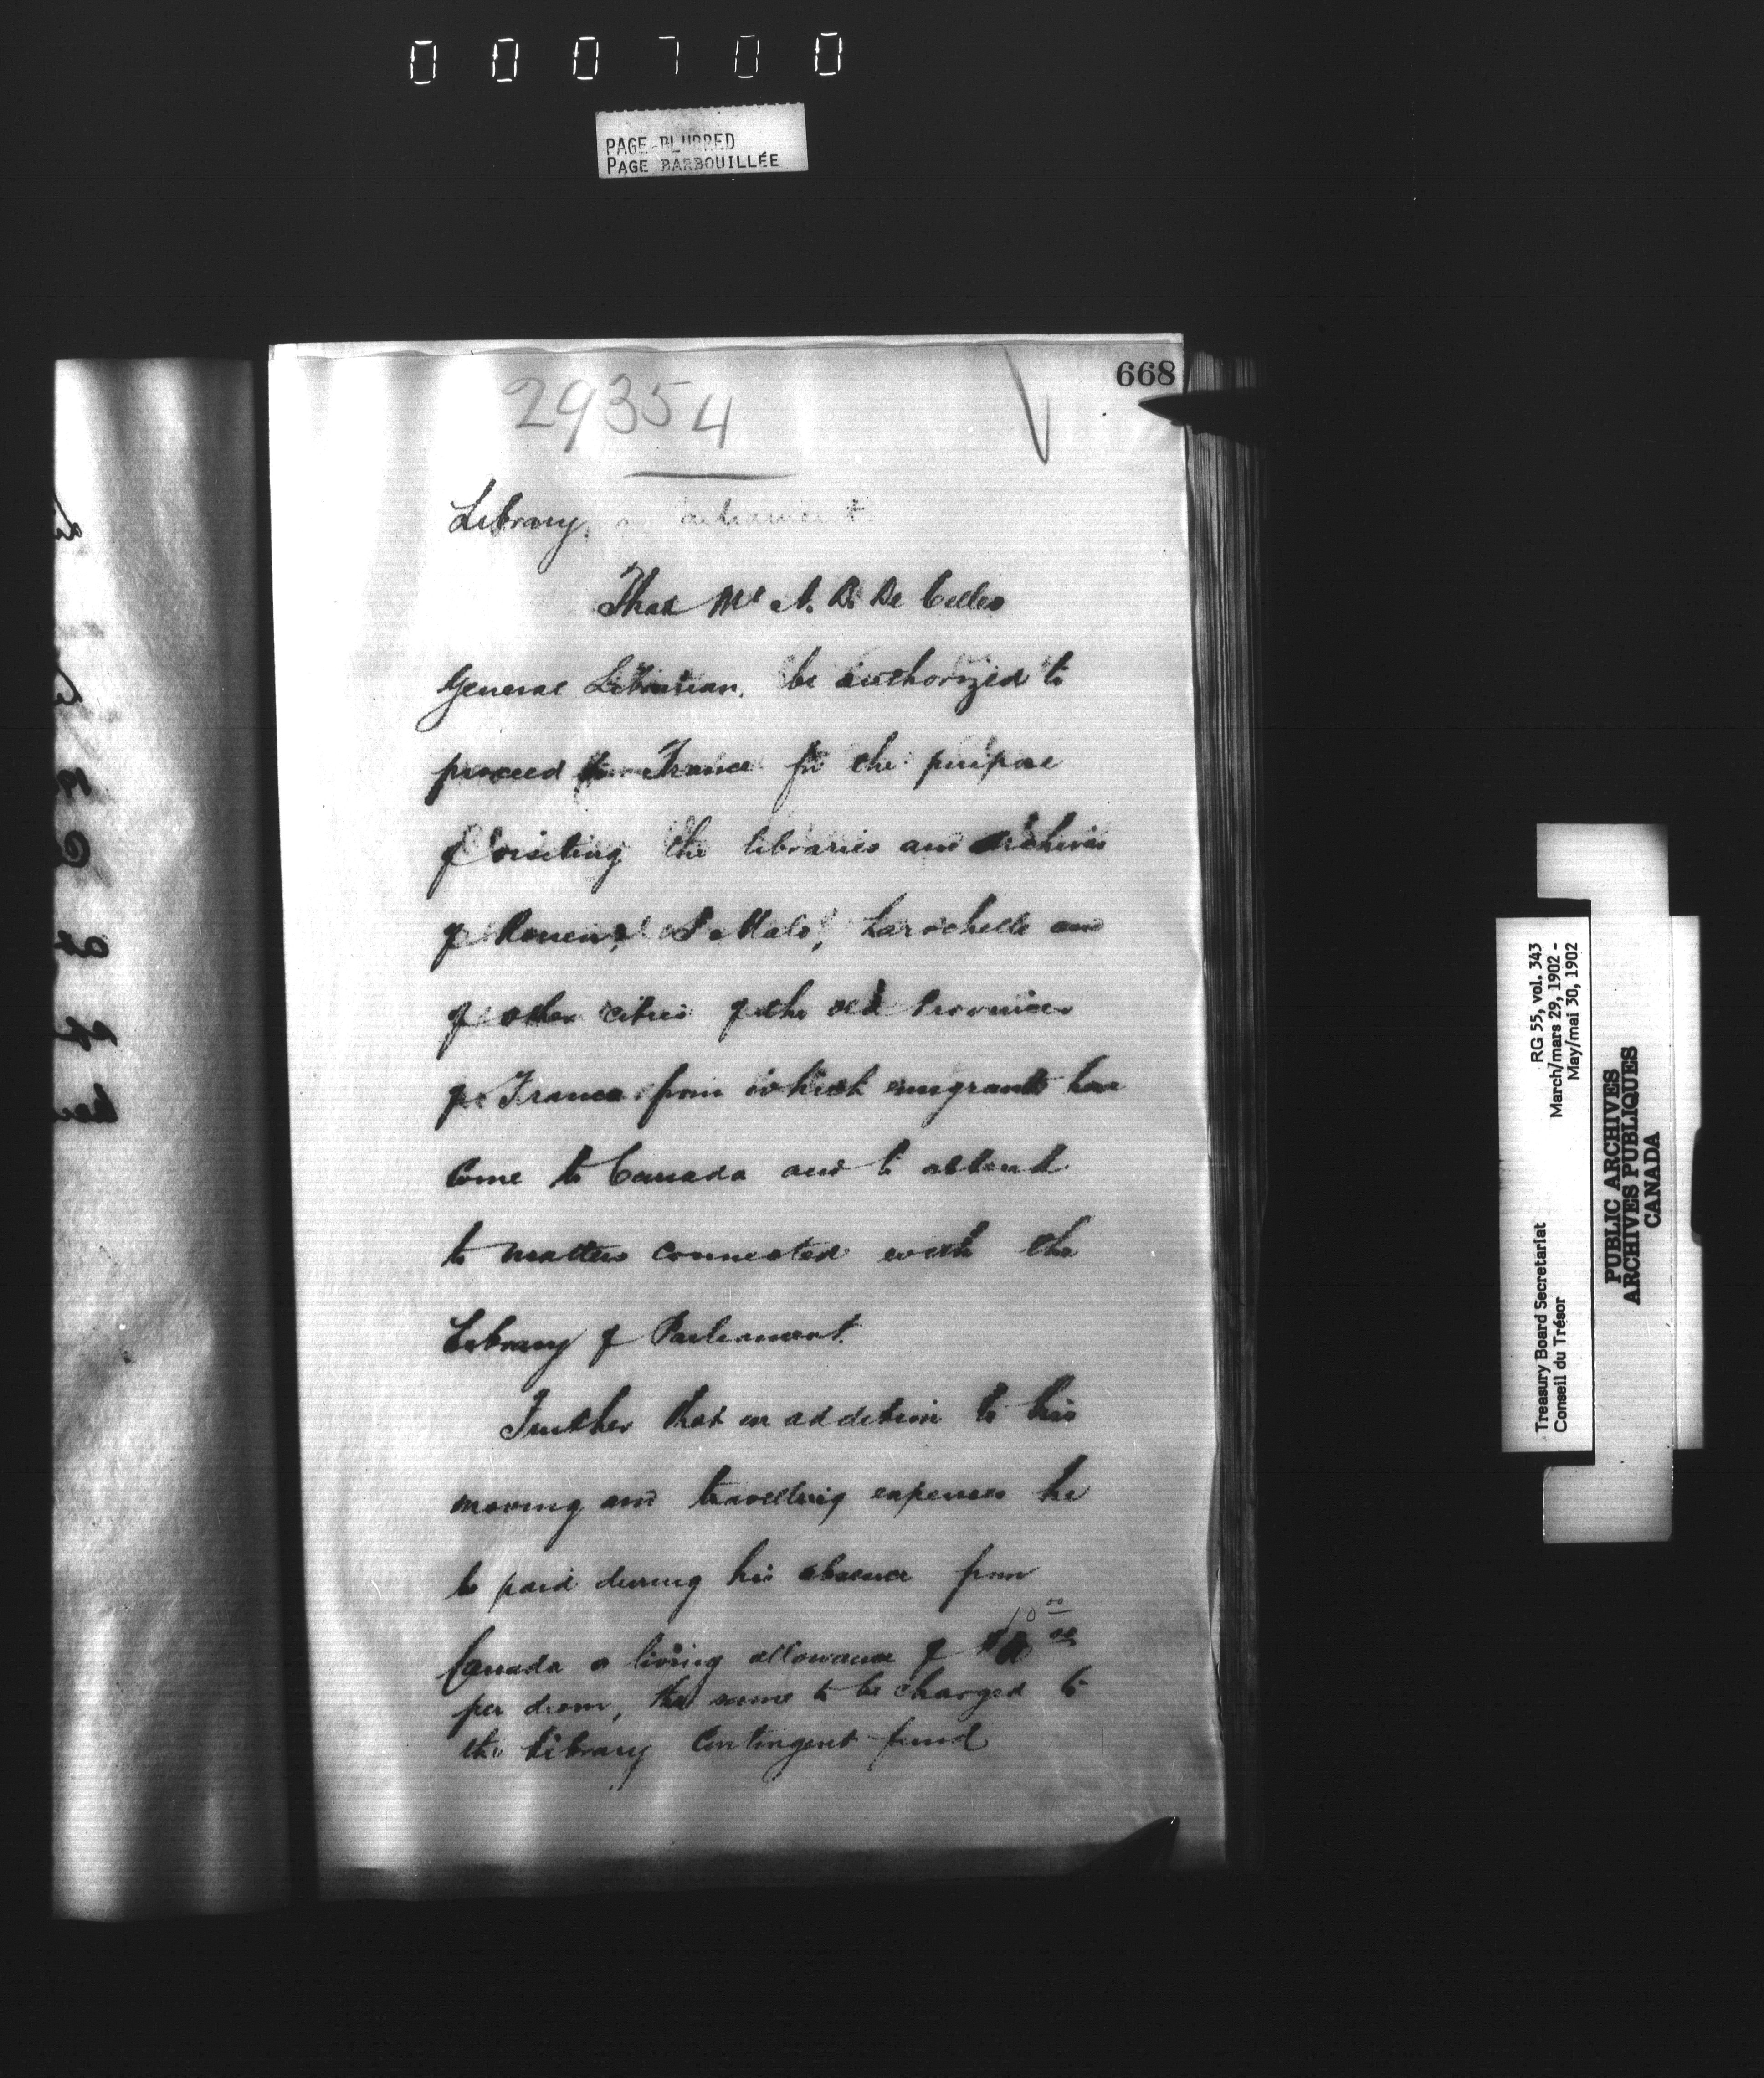 000700
PAGE BLURRED
PAGE BARBOUILLÉE
668
29354
Library Parliament.
That Mr A. D. De Celles
General Librarian, be authorized to
proceed to France for the purpose
of visiting the libraries and archives
of Rouen, St Malo, Larochelle and
of other cities of the old Provinces
of France from which emigrants have
come to Canada and to attend
to matters connected with the
Library of Parliament.
Further that in addition to his
moving and travelling expenses he
be paid during his absence from
10 00
Canada a living allowance of $
per diem, the same to be charged to
the Library Contingent fund
RG 55, vol. 343
March/mars 29, 1902 -
May/mai 30, 1902
Treasury Board Secretariat
Conseil du Trésor
PUBLIC ARCHIVES
ARCHIVES PUBLIQUES
CANADA